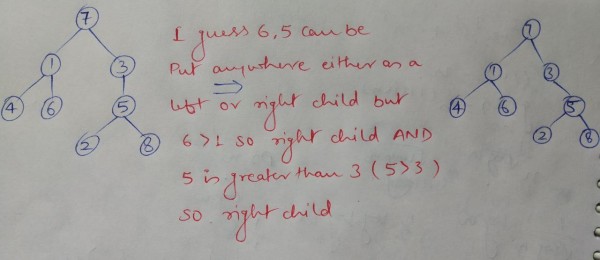 7
1 3
4 6 5
2 8
I guess 6,5 can be
Put anywhere either as a
left or right child but
6 > 1 so right child AND
5 is greater than 3 (5>3)
so right child
7
1 3
4 6 5
2 8